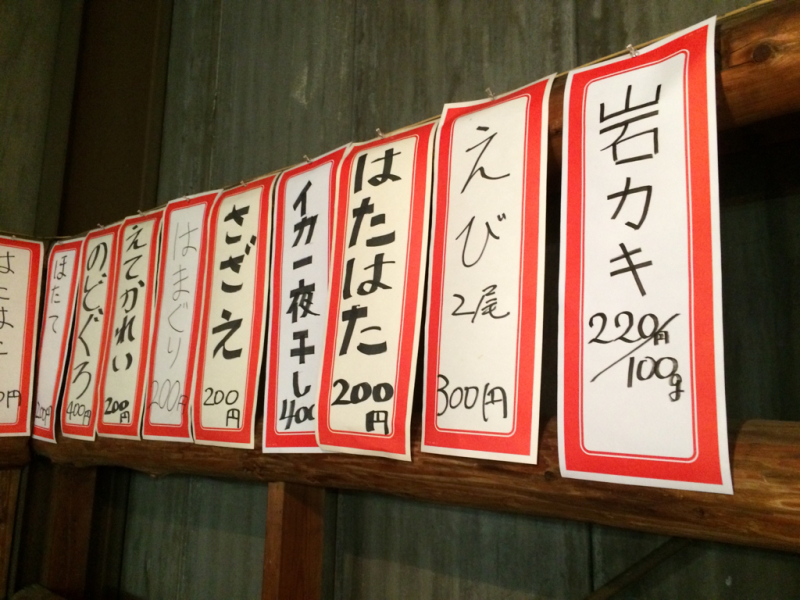 岩カキ
220円/100g
えび
2尾
300円
はたはた
200円
イカ一夜干し
400
さざえ
200円
はまぐり
200円
えてかれい
200円
のどぐろ
400円
ほたて
200円